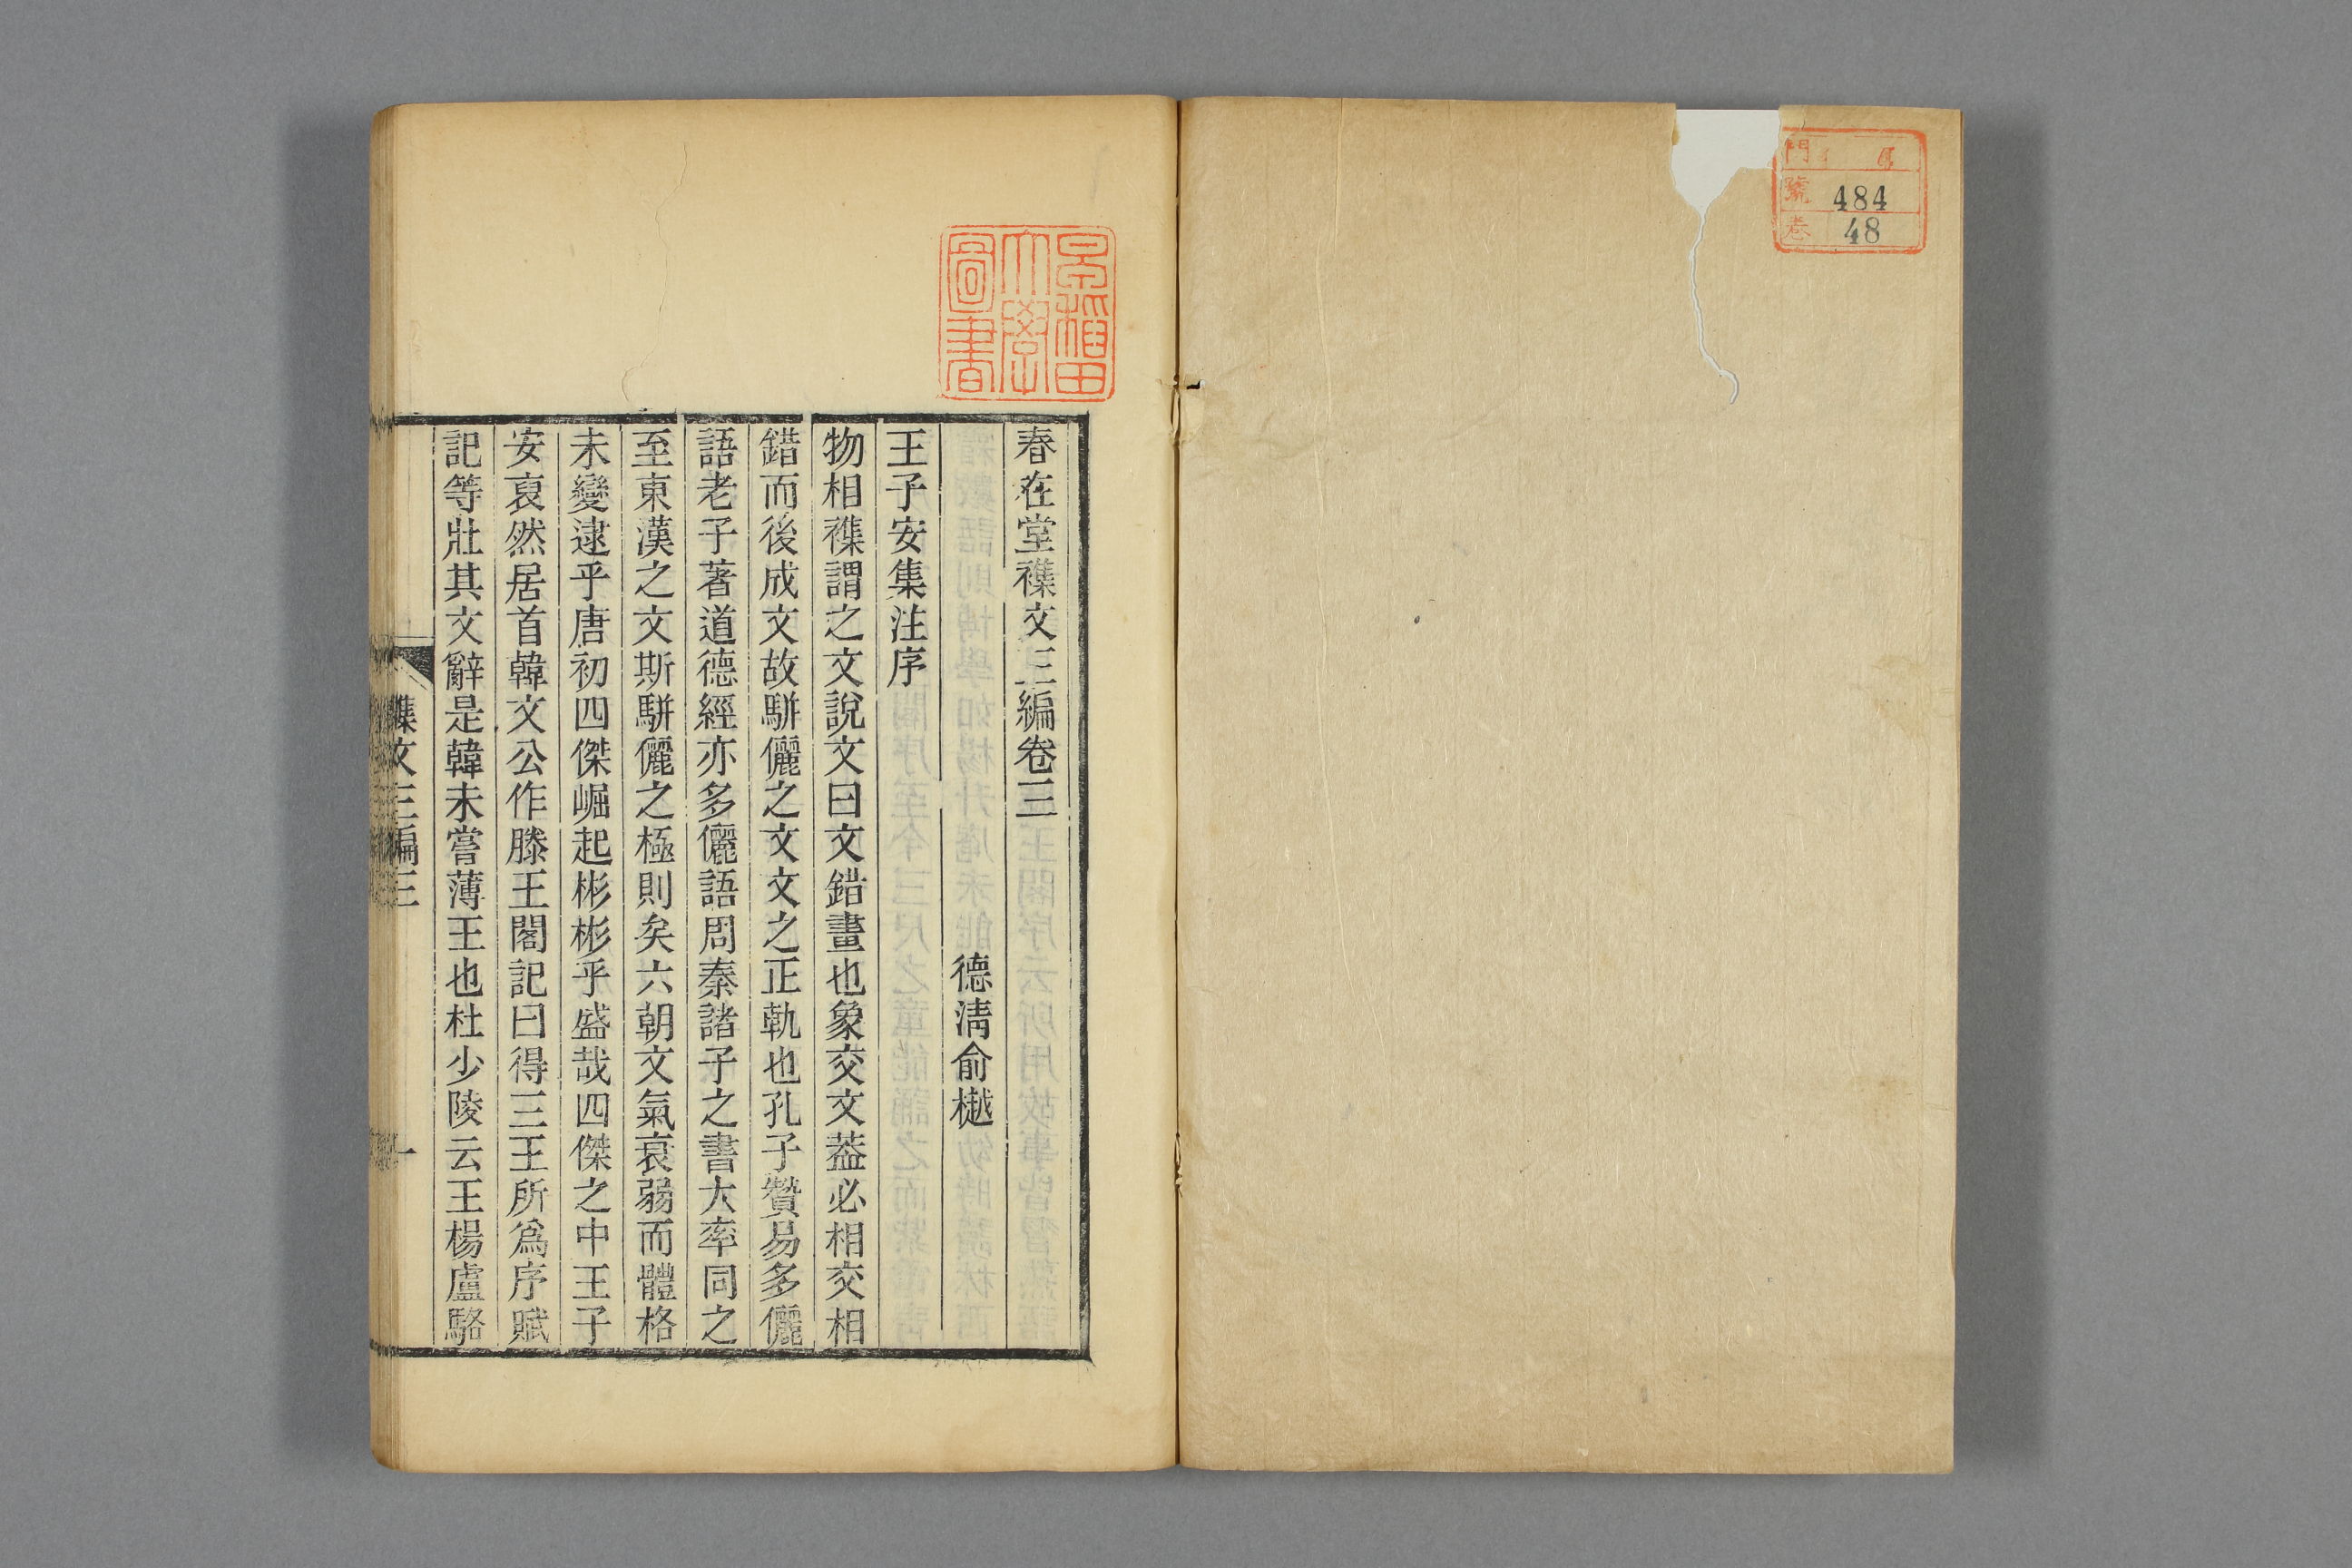 門
號 484
卷 48
早稲田
大學
圖書
春在堂襍文三編卷三
德淸俞樾
王子安集注序
物相襍謂之文說文曰文錯畫也象交文葢必相交相
錯而後成文故駢儷之文文之正軌也孔子贊易多儷
語老子著道德經亦多儷語周秦諸子之書大率同之
至東漢之文斯駢儷之極則矣六朝文氣衰弱而體格
未變逮乎唐初四傑崛起彬彬乎盛哉四傑之中王子
安裒然居首韓文公作滕王閣記曰得三王所爲序賦
記等壯其文辭是韓未嘗薄王也杜少陵云王楊盧駱
襍文三編三
一